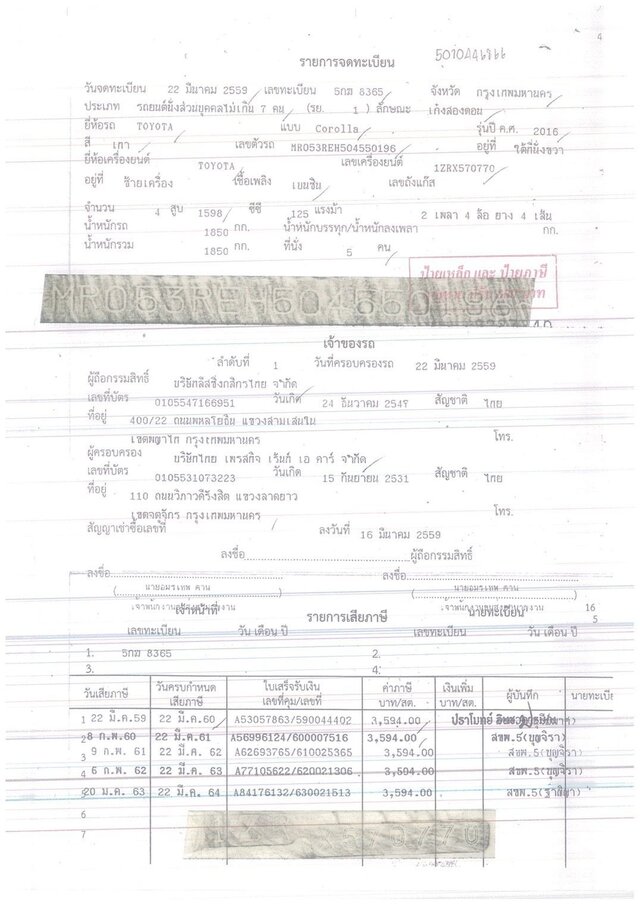 5010A46866
4
รายการจดทะเบียน
วันจดทะเบียน 22 มีนาคม 2559 เลขทะเบียน 5กฆ 8365 จังหวัด กรุงเทพมหานคร
ประเภท รถยนต์นั่งส่วนบุคคลไม่เกิน 7 คน (รย. 1) ลักษณะ เก๋งสองตอน
ยี่ห้อรถ TOYOTA แบบ Corolla รุ่นปี ค.ศ. 2016
สี เทา เลขตัวรถ MR053REH504550196 อยู่ที่ ใต้ที่นั่งขวา
ยี่ห้อเครื่องยนต์ TOYOTA เลขเครื่องยนต์ 1ZRX570770
อยู่ที่ ซ้ายเครื่อง เชื้อเพลิง เบนซิน เลขถังแก๊ส
จำนวน 4 สูบ 1598 ซีซี 125 แรงม้า 2 เพลา 4 ล้อ ยาง 4 เส้น
น้ำหนักรถ 1850 กก. น้ำหนักบรรทุก/น้ำหนักลงเพลา กก.
น้ำหนักรวม 1850 กก. ที่นั่ง 5 คน
ป้ายเหล็ก และ ป้ายภาษี
เจ้าของรถ
ลำดับที่ 1 วันที่ครอบครองรถ 22 มีนาคม 2559
ผู้ถือกรรมสิทธิ์ บริษัทลีสซิ่งกสิกรไทย จำกัด
เลขที่บัตร 0105547166951 วันเกิด 24 ธันวาคม 2547 สัญชาติ ไทย
ที่อยู่ 400/22 ถนนพหลโยธิน แขวงสามเสนใน
เขตพญาไท กรุงเทพมหานคร โทร.
ผู้ครอบครอง บริษัทไทย เพรสทิจ เร้นท์ เอ คาร์ จำกัด
เลขที่บัตร 0105531073223 วันเกิด 15 กันยายน 2531 สัญชาติ ไทย
ที่อยู่ 110 ถนนวิภาวดีรังสิต แขวงลาดยาว
เขตจตุจักร กรุงเทพมหานคร โทร.
สัญญาเช่าซื้อเลขที่ ลงวันที่ 16 มีนาคม 2559
ลงชื่อ ผู้ถือกรรมสิทธิ์
ลงชื่อ ลงชื่อ
(นายอมรเทพ คาน) (นายอมรเทพ คาน)
เจ้าหน้าที่ นายทะเบียน 16
รายการเสียภาษี 5
เลขทะเบียน วัน เดือน ปี เลขทะเบียน วัน เดือน ปี
1. 5กฆ 8365 2.
3. 4.
วันเสียภาษี วันครบกำหนดเสียภาษี ใบเสร็จรับเงินเลขที่คุม/เลขที่ ค่าภาษีบาท/สต. เงินเพิ่มบาท/สต. ผู้บันทึก นายทะเบี
1 22 มี.ค.59 22 มี.ค.60 A53057863/590044402 3,594.00 ปราโมทย์
2 8 ก.พ.60 22 มี.ค.61 A56996124/600007516 3,594.00 สขพ.5(บุญจิรา)
3 9 ก.พ. 61 22 มี.ค. 62 A62693765/610025365 3,594.00 สขพ.5(บุญจิรา)
4 6 ก.พ. 62 22 มี.ค. 63 A77105622/620021306 3,594.00 สขพ.5(บุญจิรา)
5 20 ม.ค. 63 22 มี.ค. 64 A84176132/630021513 3,594.00
6
7